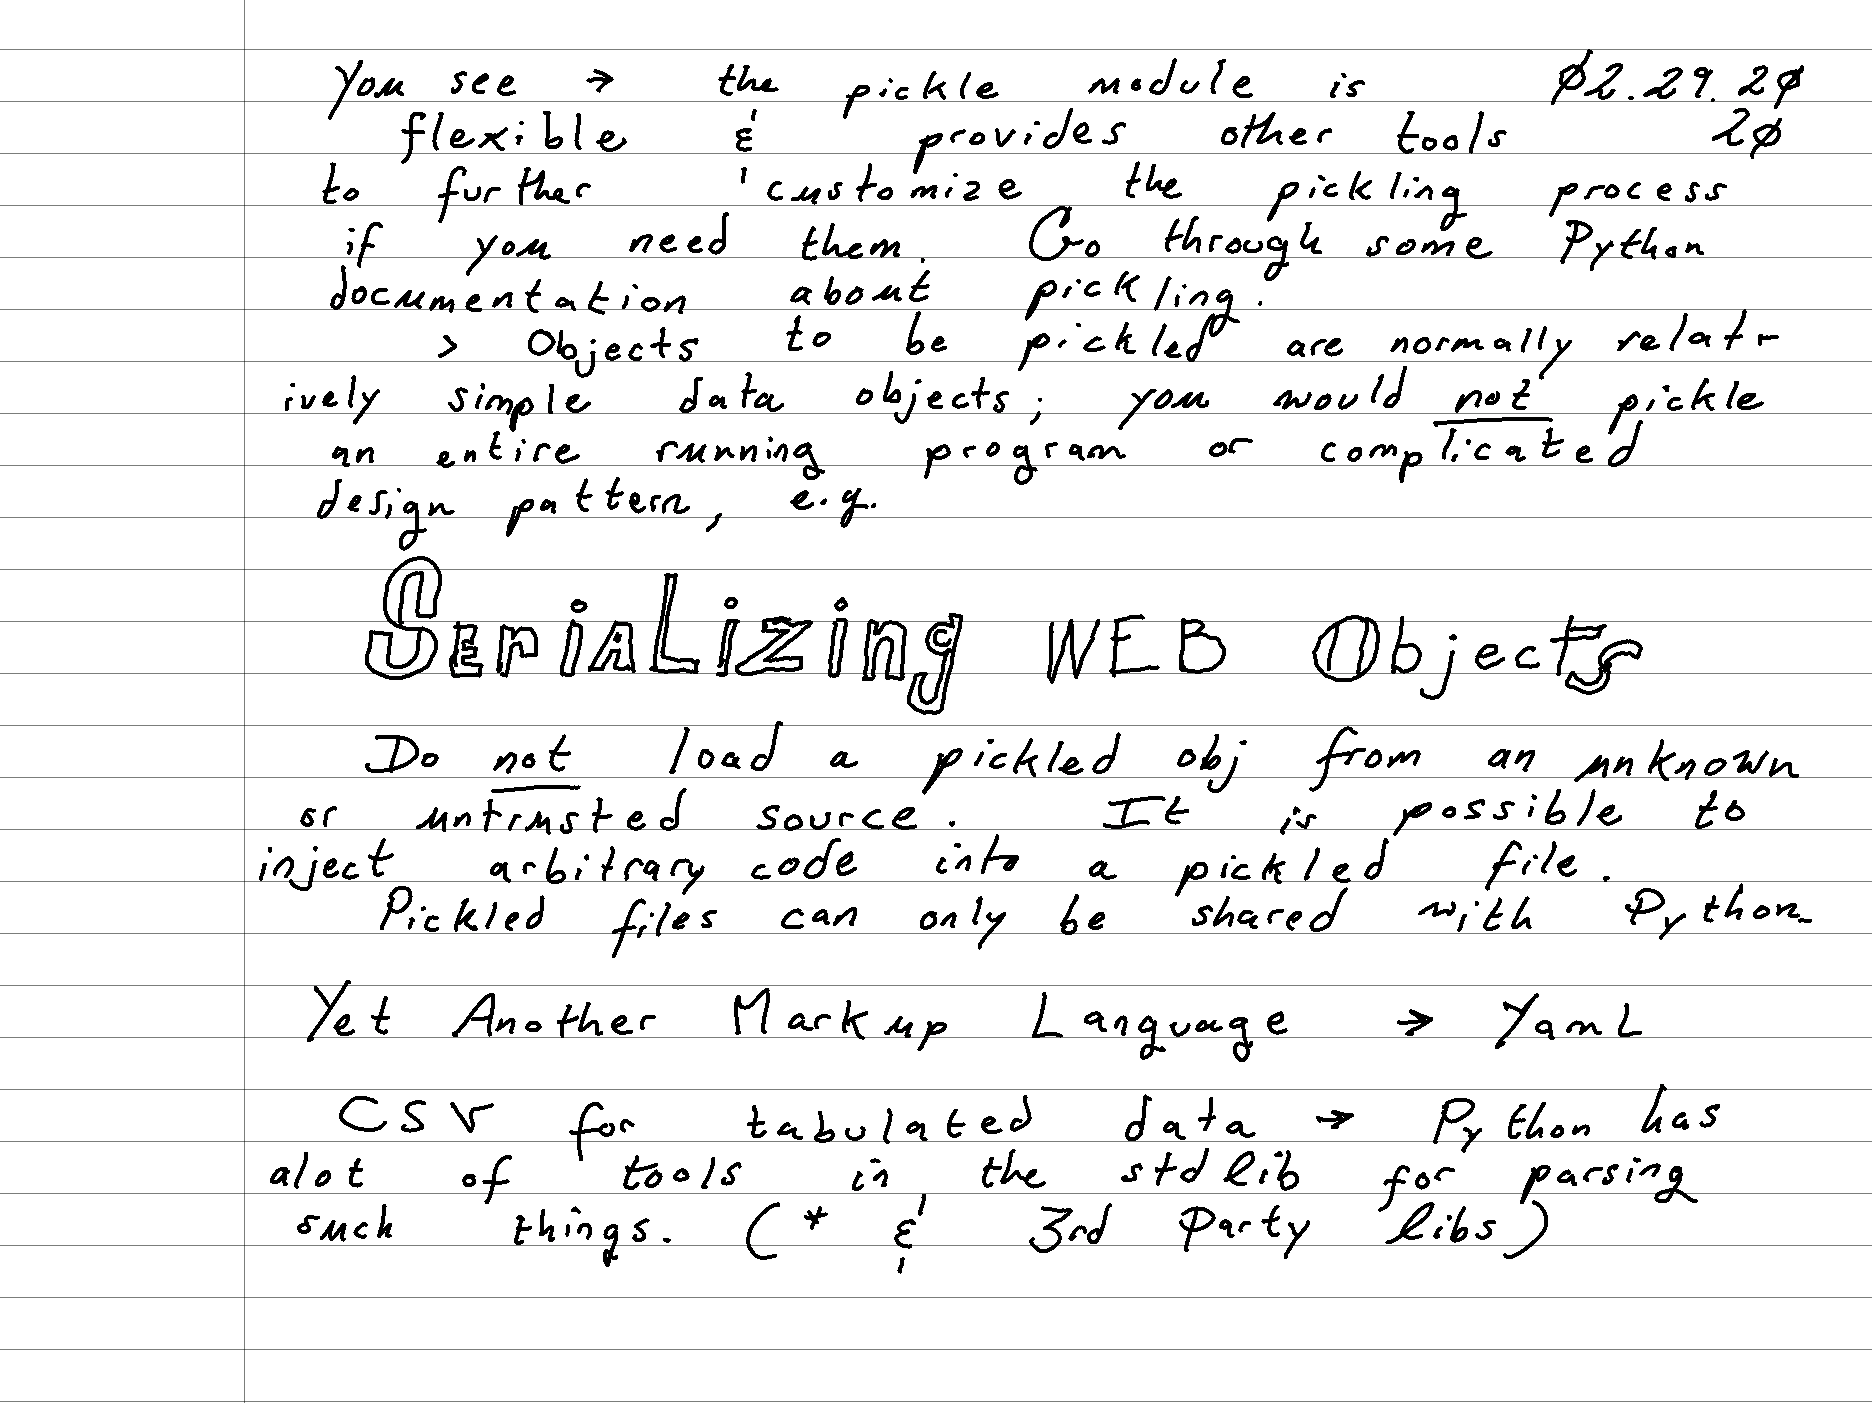 You see → the pickle module is Ø2.29.2Ø
flexible & provides other tools 2Ø
to further customize the pickling process
if you need them. Go through some Python
documentation about pickling.
> Objects to be pickled are normally relat-
ively simple data objects; you would not pickle
an entire running program or complicated
design pattern, e.g.
SeriaLizing WEB Objects
Do not load a pickled obj from an unknown
or untrusted source. It is possible to
inject arbitrary code into a pickled file.
Pickled files can only be shared with Python.
Yet Another Markup Language → YamL
CSV for tabulated data → Python has
alot of tools in the stdlib for parsing
such things. (* & 3rd Party libs)